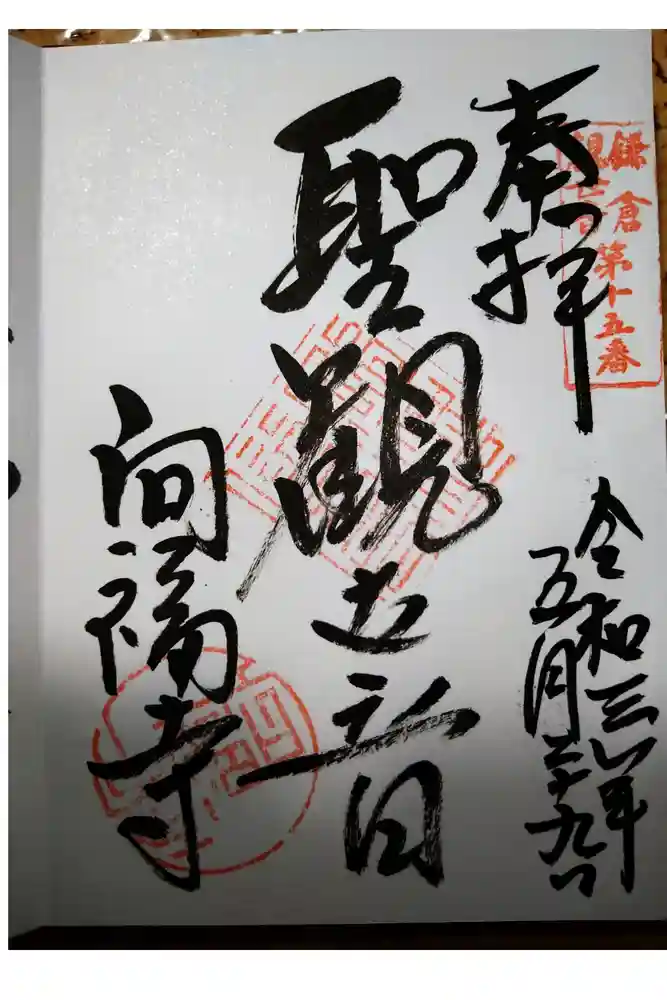 鎌倉第十五番
観世音
奉拝
令和三年
五月二十九日
聖觀世音
向福寺